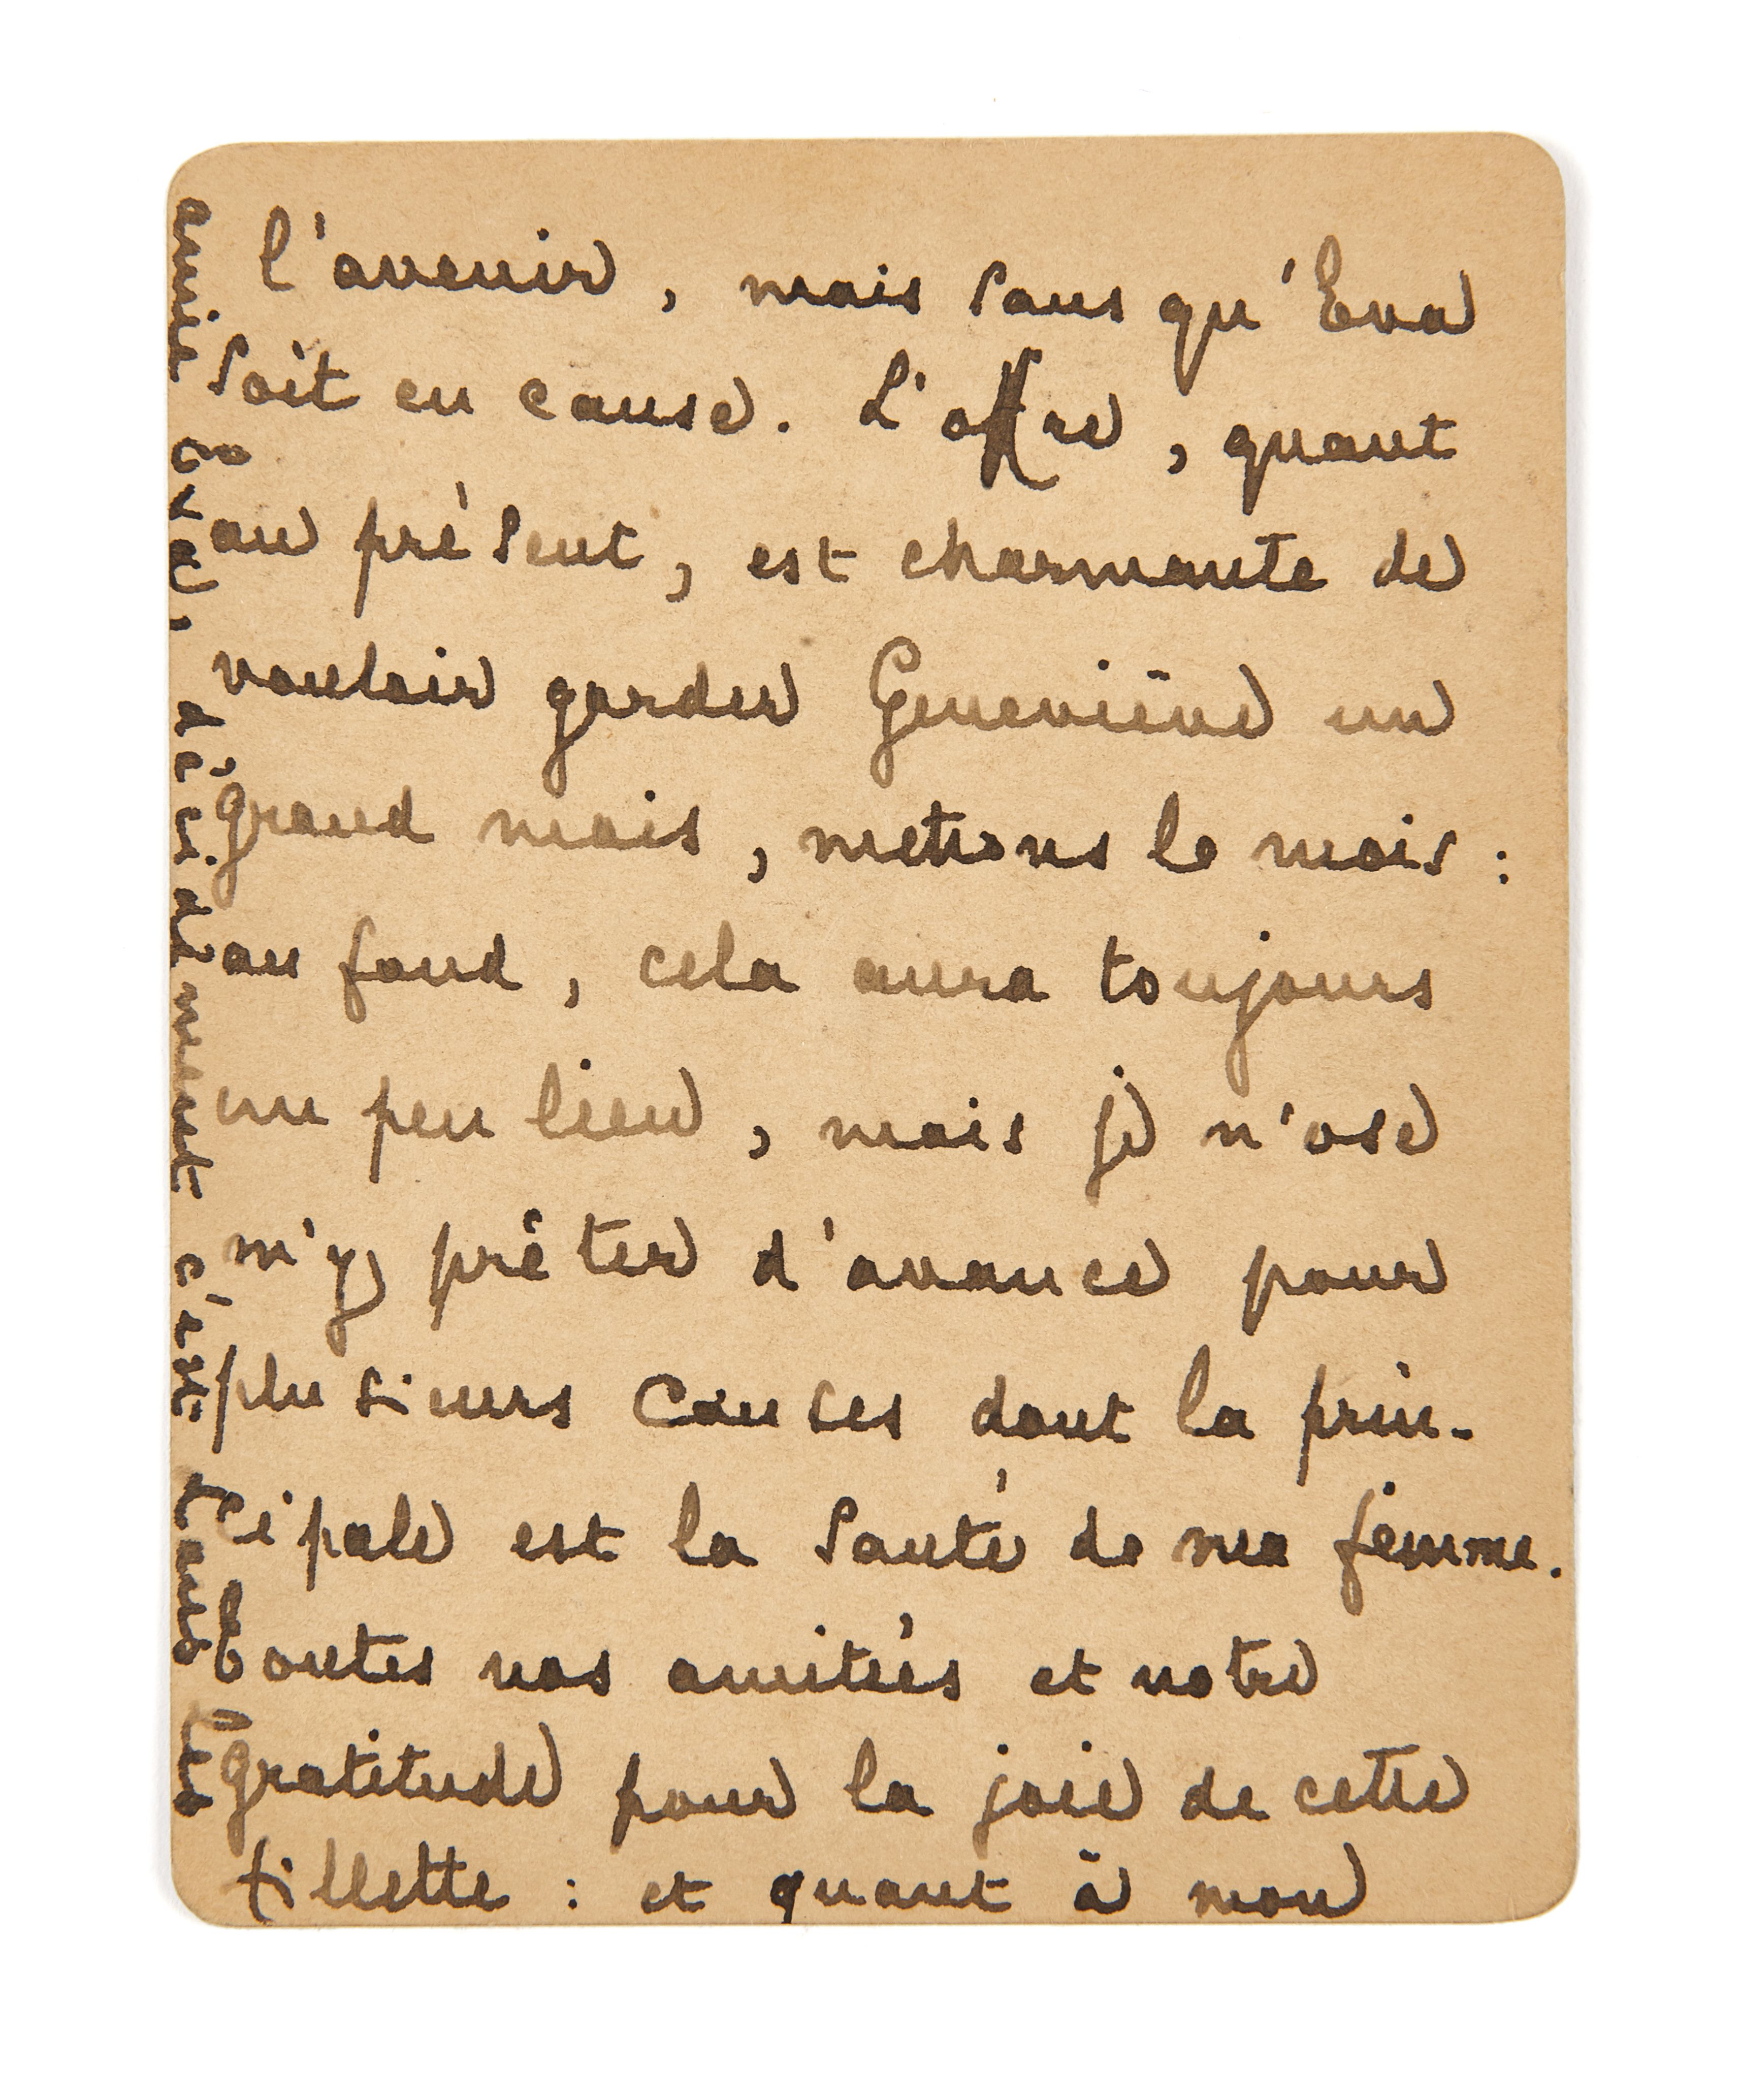 l'avenir, mais sans qu'Eva
soit en cause. L'offre, quant
au présent, est charmante de
vouloir garder Geneviève un
grand mois, mettons le mois :
au fond, cela aura toujours
un peu lieu, mais je n'ose
m'y prêter d'avance pour
plusieurs causes dont la prin-
cipale est la santé de ma femme.
Toutes nos amitiés et notre
gratitude pour la joie de cette
fillette : et quant à mon
amie Eva, décidément c'est dans les